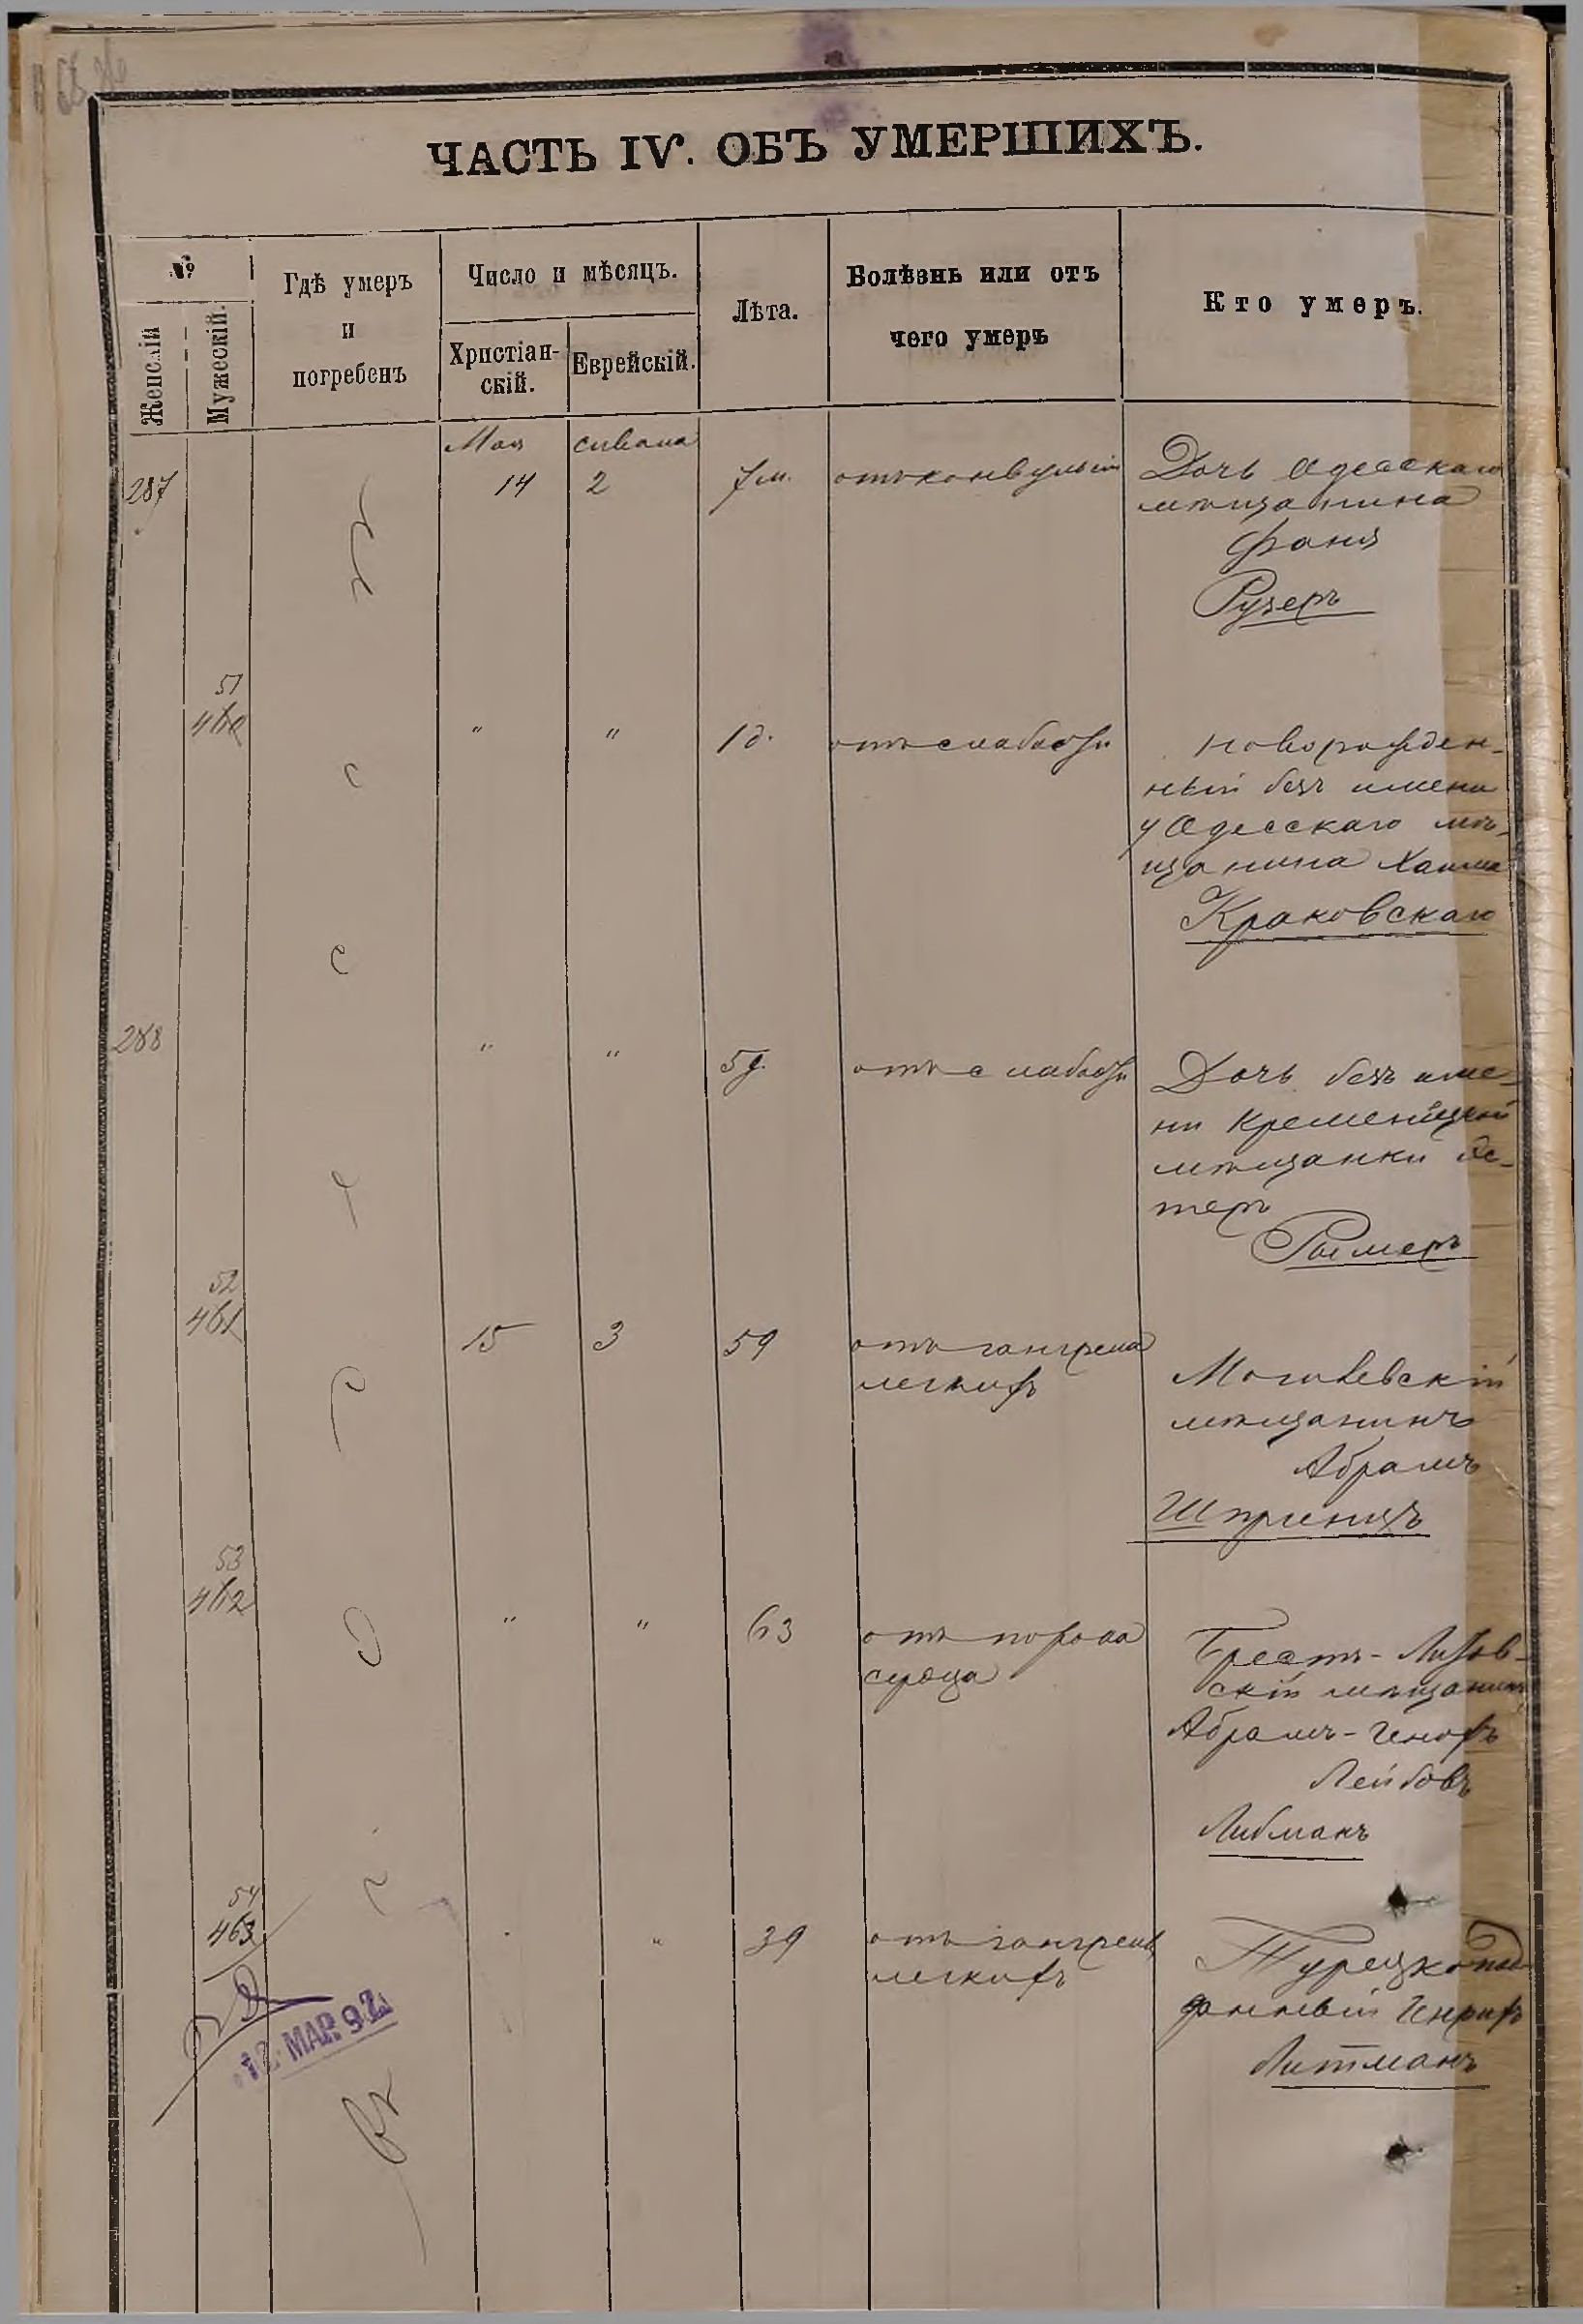 ЧАСТЬ IV. ОБЪ УМЕРШИХЪ.
№
Женскій
Мужескій.
Гдѣ умеръ
и
погребенъ
Число и мѣсяцъ.
Христіан-
скій.
Еврейскій.
Лѣта.
Болѣзнь или отъ
чего умеръ
Кто умеръ.
Мая сивана
287 14 2 7 м. отъ конвульсій Дочь Одесскаго
мѣщанина
Фаня
Рузеръ
51
460 " " 1 д. отъ слабости Новорожден-
ный безъ имени
у Одесскаго мѣ-
щанина Хаима
Краковскаго
с
с
288 " " 5 д. отъ слабости Дочь безъ име-
ни Кременецкой
мѣщанки Эс-
теръ
Раймеръ
52
461 15 3 59 отъ гангрена
легкихъ
Могилевскій
мѣщанинъ
Абрамъ
Шпринцъ
53
462 " " 63 отъ порока
сердца
Брестъ-Литов-
скій мѣщанинъ
Абрамъ-Генохъ
Лейбовъ
Либманъ
54
463 " " 39 отъ гангрены
легкихъ
Турецкоподъ
данный Генрихъ
Литманъ
12 МАР. 92